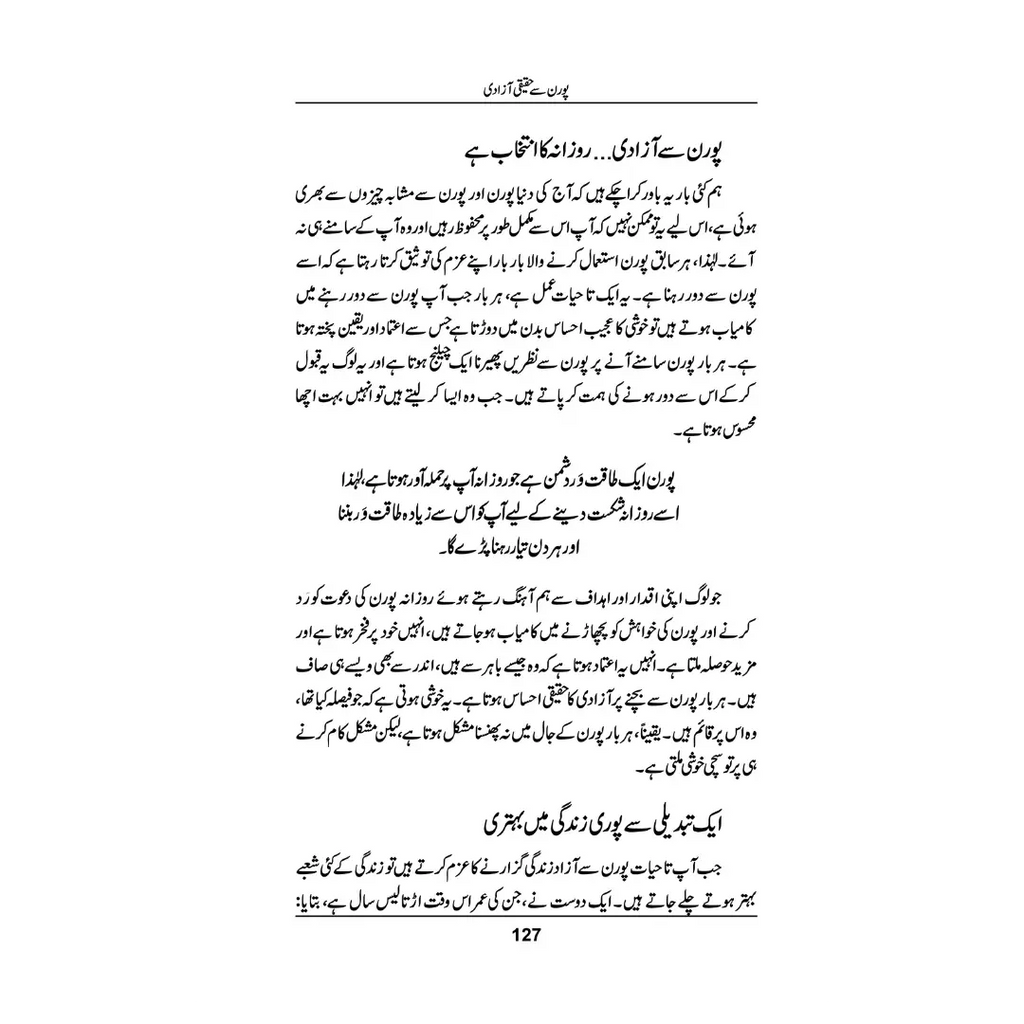 پورن سے حقیقی آزادی
پورن سے آزادی... روزانہ کا انتخاب ہے
ہم کئی بار یہ باور کرا چکے ہیں کہ آج کی دنیا پورن اور پورن سے مشابہ چیزوں سے بھری
ہوئی ہے، اس لیے یہ تو ممکن نہیں کہ آپ اس سے مکمل طور پر محفوظ رہیں اور وہ آپ کے سامنے ہی نہ
آئے۔ لہٰذا، ہر سابق پورن استعمال کرنے والا بار بار اپنے عزم کی توثیق کرتا رہتا ہے کہ اسے
پورن سے دور رہنا ہے۔ یہ ایک تاحیات عمل ہے، ہر بار جب آپ پورن سے دور رہنے میں
کامیاب ہوتے ہیں تو خوشی کا عجیب احساس بدن میں دوڑتا ہے جس سے اعتماد اور یقین پختہ ہوتا
ہے۔ ہر بار پورن سامنے آنے پر پورن سے نظریں پھیرنا ایک چیلنج ہوتا ہے اور یہ لوگ یہ قبول
کر کے اس سے دور ہونے کی ہمت کر پاتے ہیں۔ جب وہ ایسا کر لیتے ہیں تو انہیں بہت اچھا
محسوس ہوتا ہے۔
پورن ایک طاقت وَر دشمن ہے جو روزانہ آپ پر حملہ آور ہوتا ہے، لہٰذا
اسے روزانہ شکست دینے کے لیے آپ کو اس سے زیادہ طاقت وَر بننا
اور ہر دن تیار رہنا پڑے گا۔
جو لوگ اپنی اقدار اور اہداف سے ہم آہنگ رہتے ہوئے روزانہ پورن کی دعوت کو رَد
کرنے اور پورن کی خواہش کو پچھاڑنے میں کامیاب ہو جاتے ہیں، انہیں خود پر فخر ہوتا ہے اور
مزید حوصلہ ملتا ہے۔ انہیں یہ اعتماد ہوتا ہے کہ وہ جیسے باہر سے ہیں، اندر سے بھی ویسے ہی صاف
ہیں۔ ہر بار پورن سے بچنے پر آزادی کا حقیقی احساس ہوتا ہے۔ یہ خوشی ہوتی ہے کہ جو فیصلہ کیا تھا،
وہ اس پر قائم ہیں۔ یقیناً، ہر بار پورن کے جال میں نہ پھنسنا مشکل ہوتا ہے، لیکن مشکل کام کرنے
ہی پر تو سچی خوشی ملتی ہے۔
ایک تبدیلی سے پوری زندگی میں بہتری
جب آپ تاحیات پورن سے آزاد زندگی گزارنے کا عزم کرتے ہیں تو زندگی کے کئی شعبے
بہتر ہوتے چلے جاتے ہیں۔ ایک دوست نے، جن کی عمر اس وقت اڑتالیس سال ہے، بتایا:
127